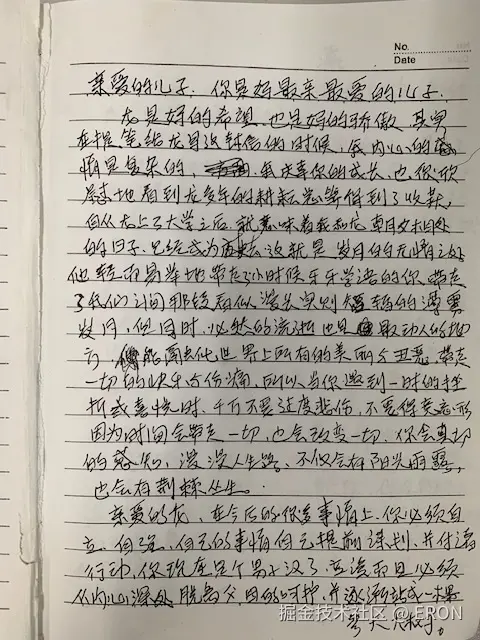 No.
Date
亲爱的儿子,你是妈最亲最爱的儿子.
龙是妈的希望,也是妈的骄傲,其实
在提笔给龙写这封信的时候,我内心的
情是复杂的,我庆幸你的成长,也很欣
慰地看到龙多年的耕耘总算得到了收获,
自从龙上了大学之后,就意味着我和龙朝夕相处
的日子,已经成为过去,这就是岁月的无情之处
他轻而易举地带走了小时候牙牙学语的你,带走
了我们之间那段看似漫长实则短暂的
岁月,但同时,必然的流逝也是最动人的地
方,他能变化世界上所有的美丽与丑恶,带走
一切的快乐与伤痛,所以当你遇到一时的挫
折或喜悦时,千万不要过度悲伤,不要得意忘形
因为时间会带走一切,也会改变一切,你会真切
的感知,漫漫人生路,不仅会有阳光雨露,
也会有荆棘丛生。
亲爱的龙,在今后的很多事情上,你必须自
立、自强,自己的事情自己提前谋划,并付诸
行动,你现在是个男子汉了,应该而且必须
从内心深处脱离父母的呵护,并逐渐站成一棵
参天大树。
掘金技术社区 @ ERON